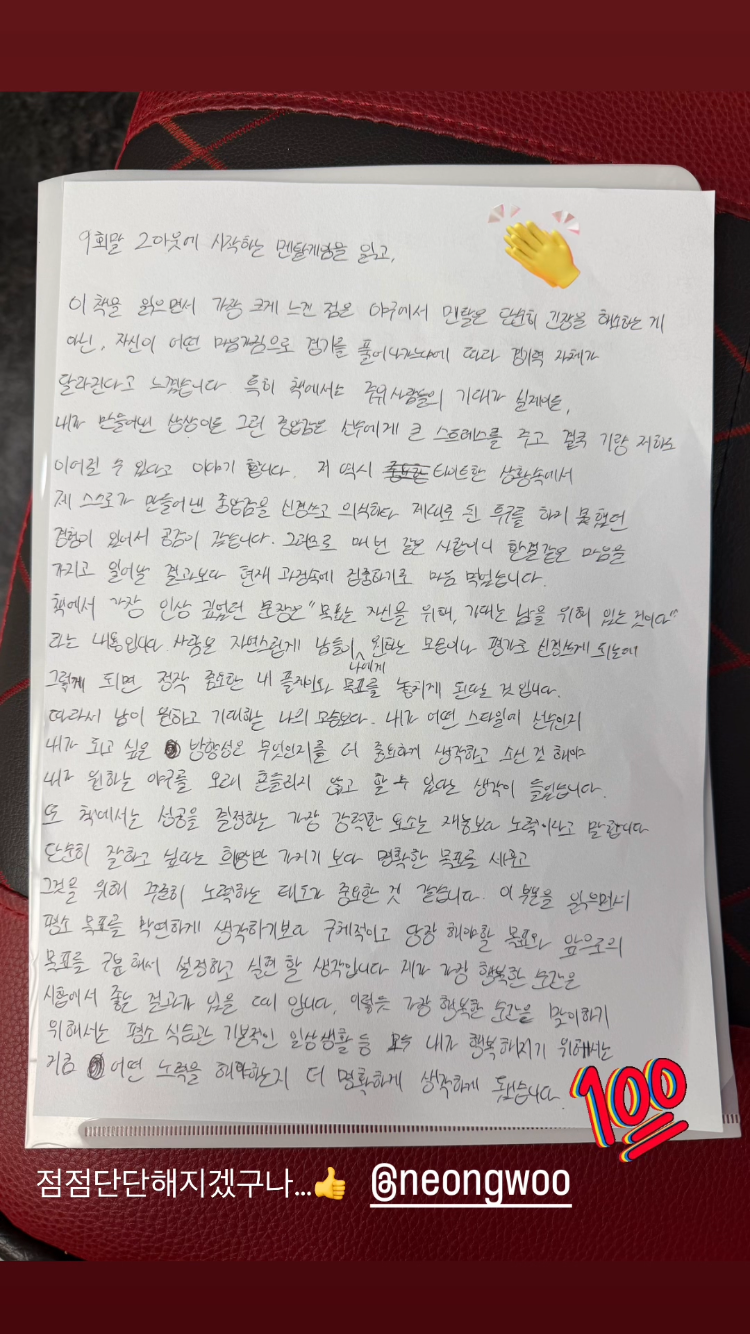 9회말 2아웃에 시작하는 멘탈게임을 읽고,
이 책을 읽으면서 가장 크게 느낀 점은 야구에서 멘탈은 단순히 긴장을 해소하는 게
아닌, 자신이 어떤 마음가짐으로 경기를 풀어나가느냐에 따라 경기력 자체가
달라진다고 느꼈습니다. 특히 책에서는 주위 사람들의 기대가 실제이든,
내가 만들어낸 상상이든 그런 중압감은 선수에게 큰 스트레스를 주고 결국 기량 저하로
이어질 수 있다고 이야기 합니다. 저 역시 타이트한 상황속에서
제 스스로가 만들어 낸 중압감을 신경쓰고 의식하다 제대로 된 투구를 하지 못했던
경험이 있어서 공감이 갔습니다. 그러므로 매 번 같은 시합이니 한결같은 마음을
가지고 일어날 결과보다 현재 과정속에 집중하기로 마음 먹었습니다.
책에서 가장 인상 깊었던 문장은 "목표는 자신을 위해, 기대는 남을 위해 있는 것이다"
라는 내용입니다. 사람은 자연스럽게 남들이 나에게 원하는 모습이나 평가를 신경쓰게 되는데
그렇게 되면 정작 중요한 내 플레이와 목표를 놓치게 된다는 것 입니다.
따라서 남이 원하고 기대하는 나의 모습보다. 내가 어떤 스타일의 선수인지
내가 되고 싶은 방향성은 무엇인지를 더 중요하게 생각하고 소신 것 해야
내가 원하는 야구를 오래 흔들리지 않고 할 수 있다는 생각이 들었습니다.
또 책에서는 성공을 결정하는 가장 강력한 요소는 재능보다 노력이라고 말합니다
단순히 잘하고 싶다는 희망만 가지기 보다 명확한 목표를 세우고
그것을 위해 꾸준히 노력하는 태도가 중요한 것 같습니다. 이 부분을 읽으면서
평소 목표를 막연하게 생각하기보다 구체적이고 당장 해야할 목표와 앞으로의
목표를 구분해서 설정하고 실현 할 생각입니다 제가 가장 행복한 순간은
시합에서 좋은 결과가 있을 때 입니다. 이렇듯 가장 행복한 순간을 맞이하기
위해서는 평소 식습관 기본적인 일상생활 등 내가 행복해지기 위해서는
지금 어떤 노력을 해야하는지 더 명확하게 생각하게 됐습니다.
점점단단해지겠구나...👍 @neongwoo